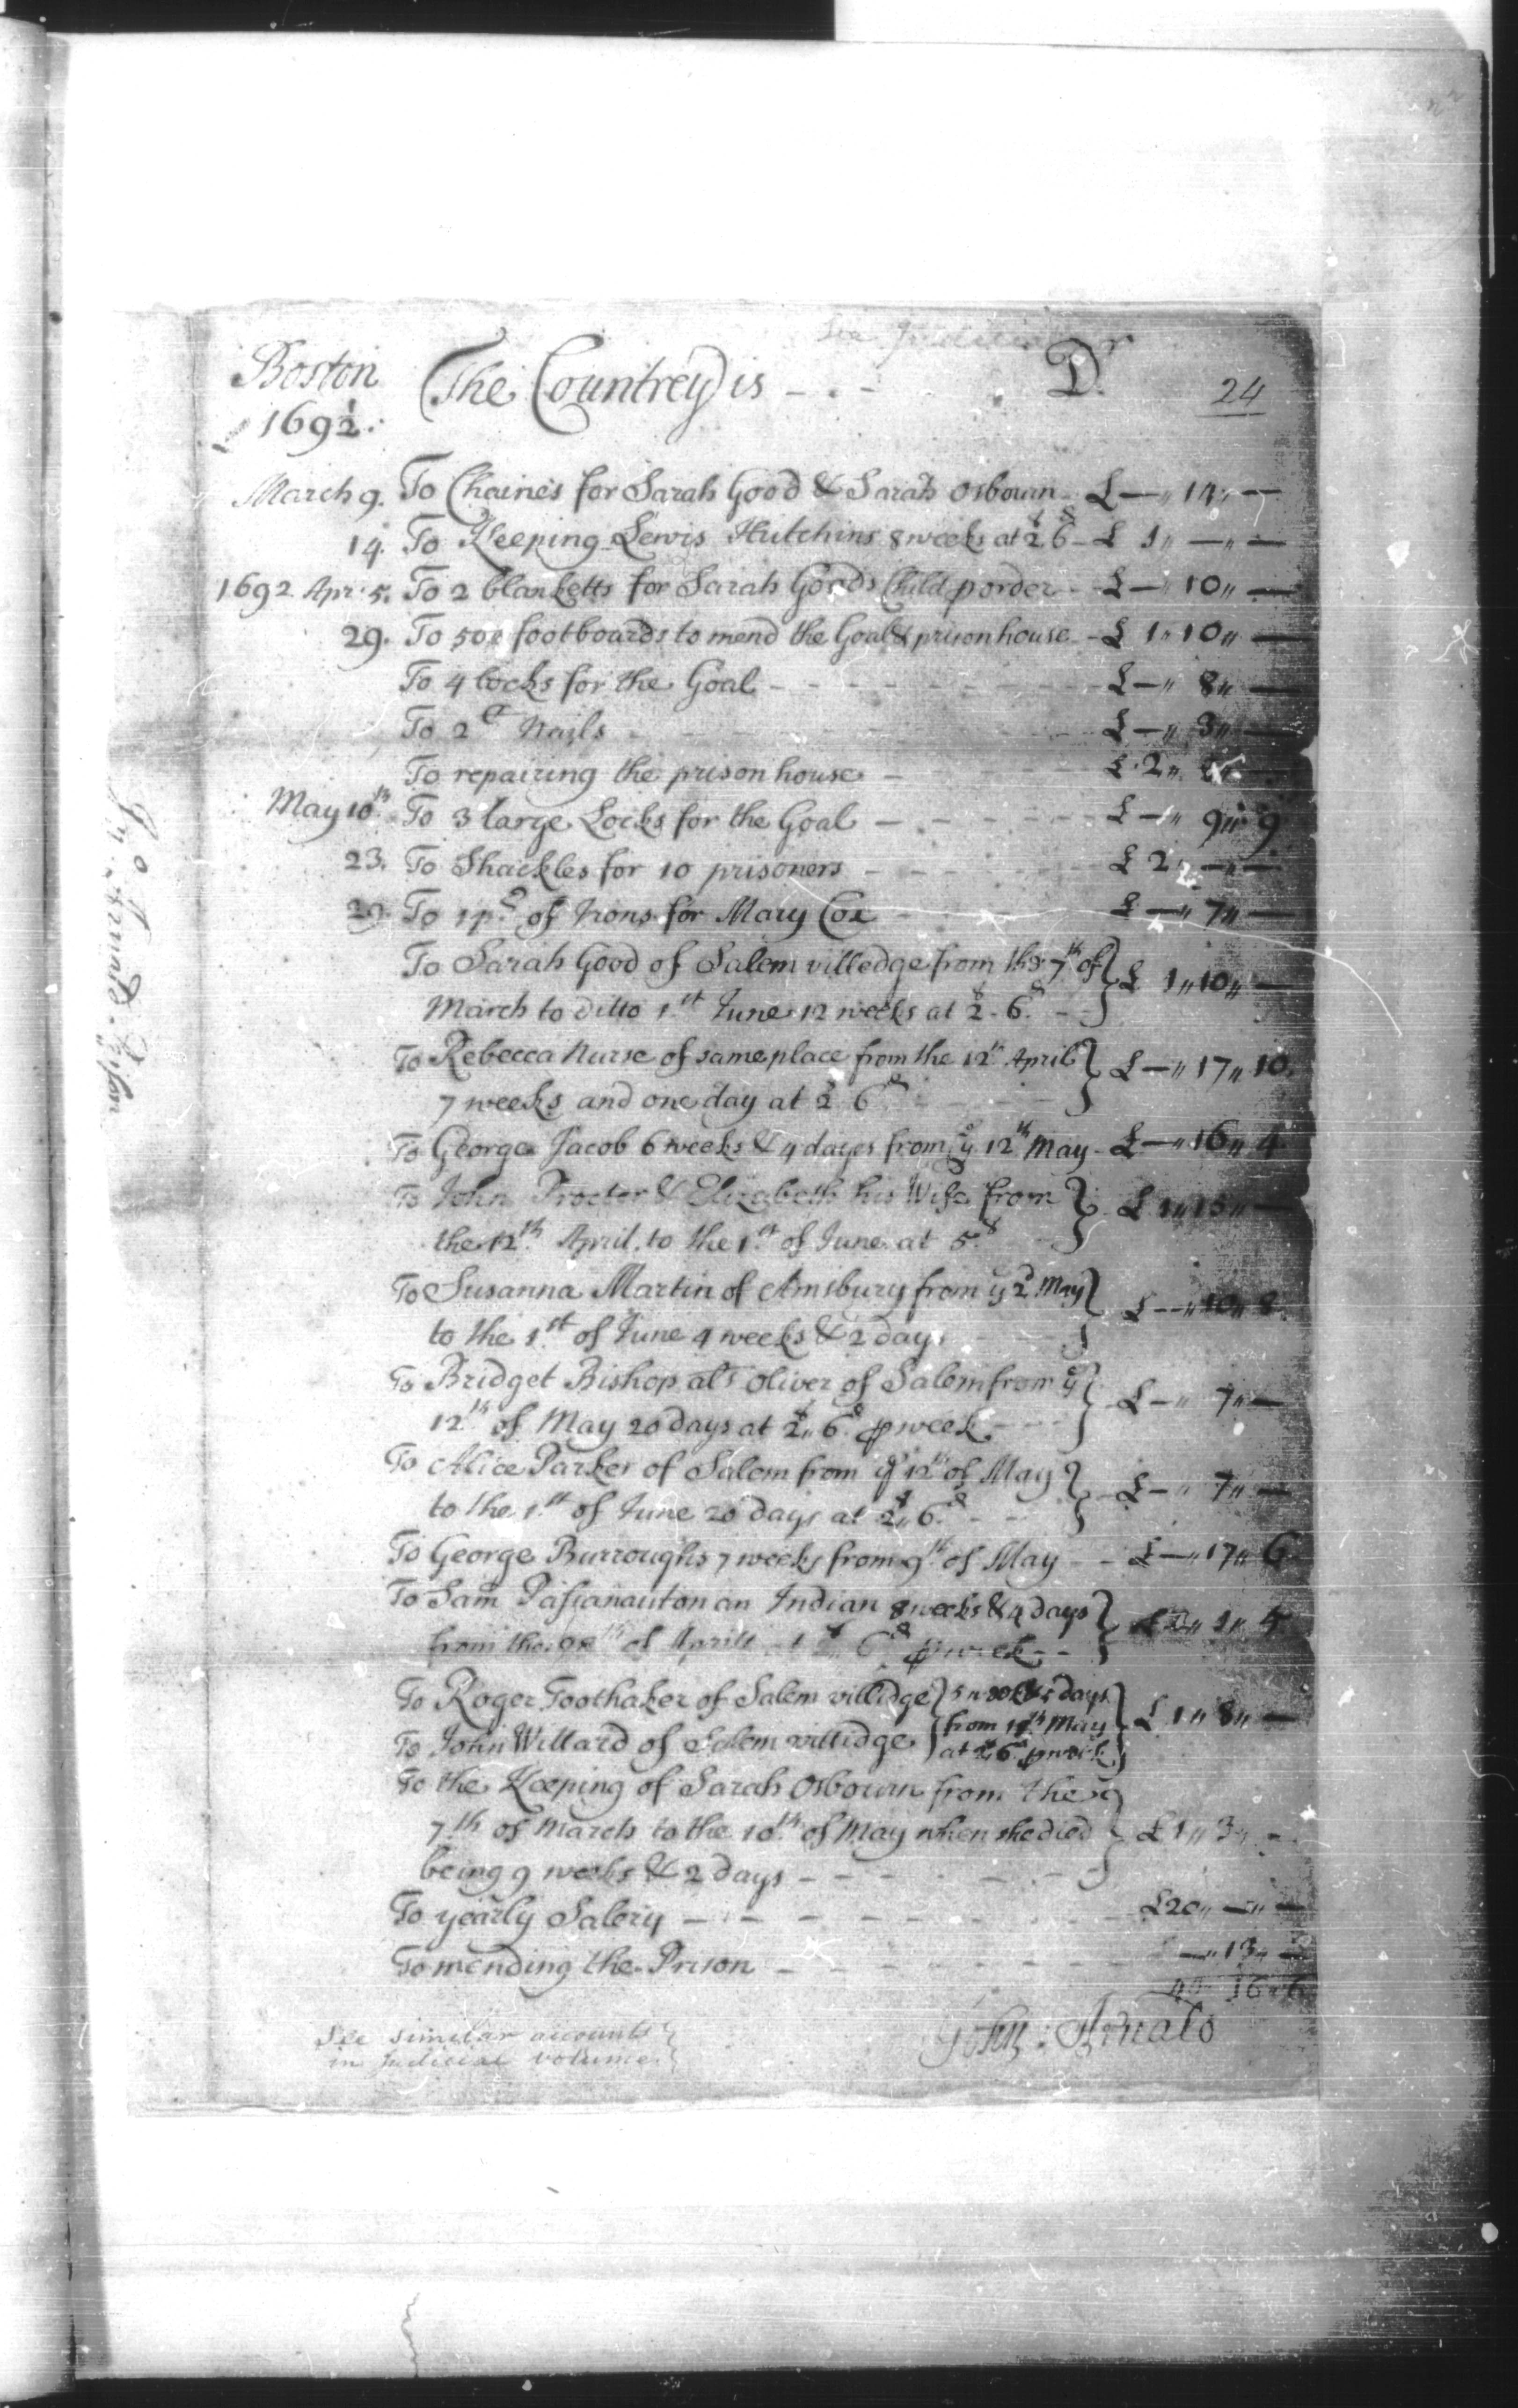 Boston The Countrey is - . - . Dr.
24
169½.
March 9. To Chaines for Sarah Good & Sarah Osbourn - £ — „ 14 „ —
14. To Keeping Lewis Hutchins 8 weeks at 2s 6d - £ 1 „ — „ —
1692 Apr: 5. To 2 blanketts for Sarah Goods Child p order - £ — „ 10 „ —
29. To 500 foot boards to mend the Goal & prison house - £ 1 „ 10 „ —
To 4 locks for the Goal - £ — „ 8 „ —
To 2 Nails £ — „ 3 „ —
To repairing the prison house - £ 2 „
May 10th To 3 large Locks for the Goal - £ — „ 9 „ 9
23. To Shackles for 10 prisoners - £ 2 „ — „ —
29. To 1 pr of Irons for Mary Cox £ — „ 7 „ —
To Sarah Good of Salem villedge from the 7th of } £ 1 „ 10 „ —
March to ditto 1st June 12 weeks at 2s 6d
To Rebecca Nurse of same place from the 12th April } £ — „ 17 „ 10.
7 weeks and one day at 2s 6d
To George Jacob 6 weeks & 4 dayes from ye 12th May - £ — „ 16 „ 4
To John Procter & Elizabeth his Wife from } £ 1 „ 15 „ —
the 12th April, to the 1st of June at 5s
To Susanna Martin of Amsbury from ye 2d May } £ — „ 10 „ 8.
to the 1st of June 4 weeks & 2 days
To Bridget Bishop als Oliver of Salem from ye } £ — „ 7 „ —
12th of May 20 days at 2s „ 6d p week
To Alice Parker of Salem from ye 12th of May } £ — „ 7 „ —
to the 1st of June 20 days at 2s „ 6d
To George Burroughs 7 weeks from 9th of May - £ — „ 17 „ 6
To Sam Passanauton an Indian 8 weeks & 4 days } £ 1 „ 1 „ 5
from the 28th of Aprill at 2s 6d p week
To Roger Toothaker of Salem villidge } 5 weeks & 5 days } £ 1 „ 8 „ —
To John Willard of Salem villidge } from 18th May
at 2s 6d p week
To the Keeping of Sarah Osbourn from the
7th of March to the 10th of May when she died } £ 1 „ 3 „ -
being 9 weeks & 2 days
To yearly Salery - £ 20 „ — „ —
To mending the Prison - — „ 13 „ —
40 16 „ 6
John: Arnald
See similar accounts
in judicial volume.